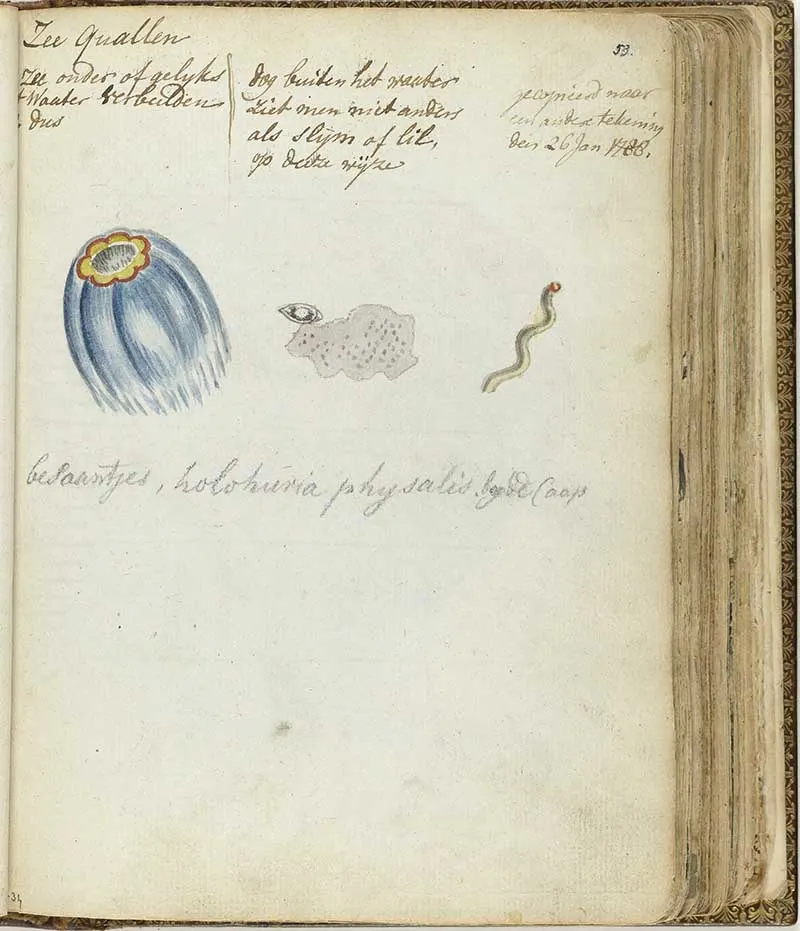 Zee Quallen
53.
Zee onder of gelyks
t Waater verbeelden
dus
dog buiten het waater
ziet men niet anders
als slijm of lil,
op deeze wijze
gecopieerd naar
een andere tekening
den 26 Jan 1788.
besaantjes, holohuria physalis byde Caap
34